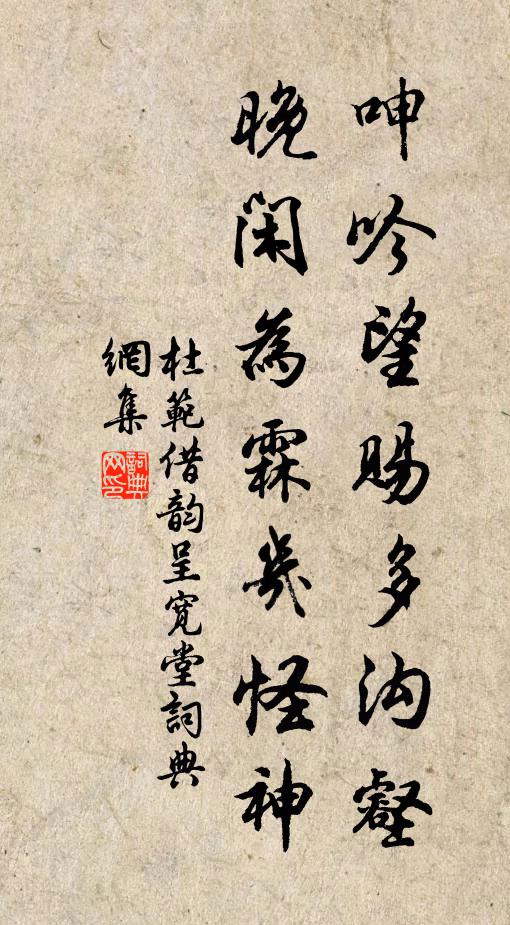 呻吟望賜多沟壑
晚闲為霖幾怪神
杜範借韵呈寬堂詞典
網集
詞典
網印